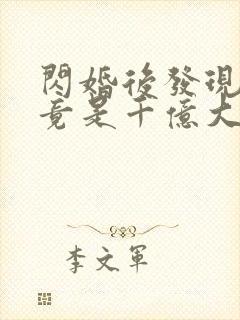 閃婚後發現
竟是千億大
李文軍